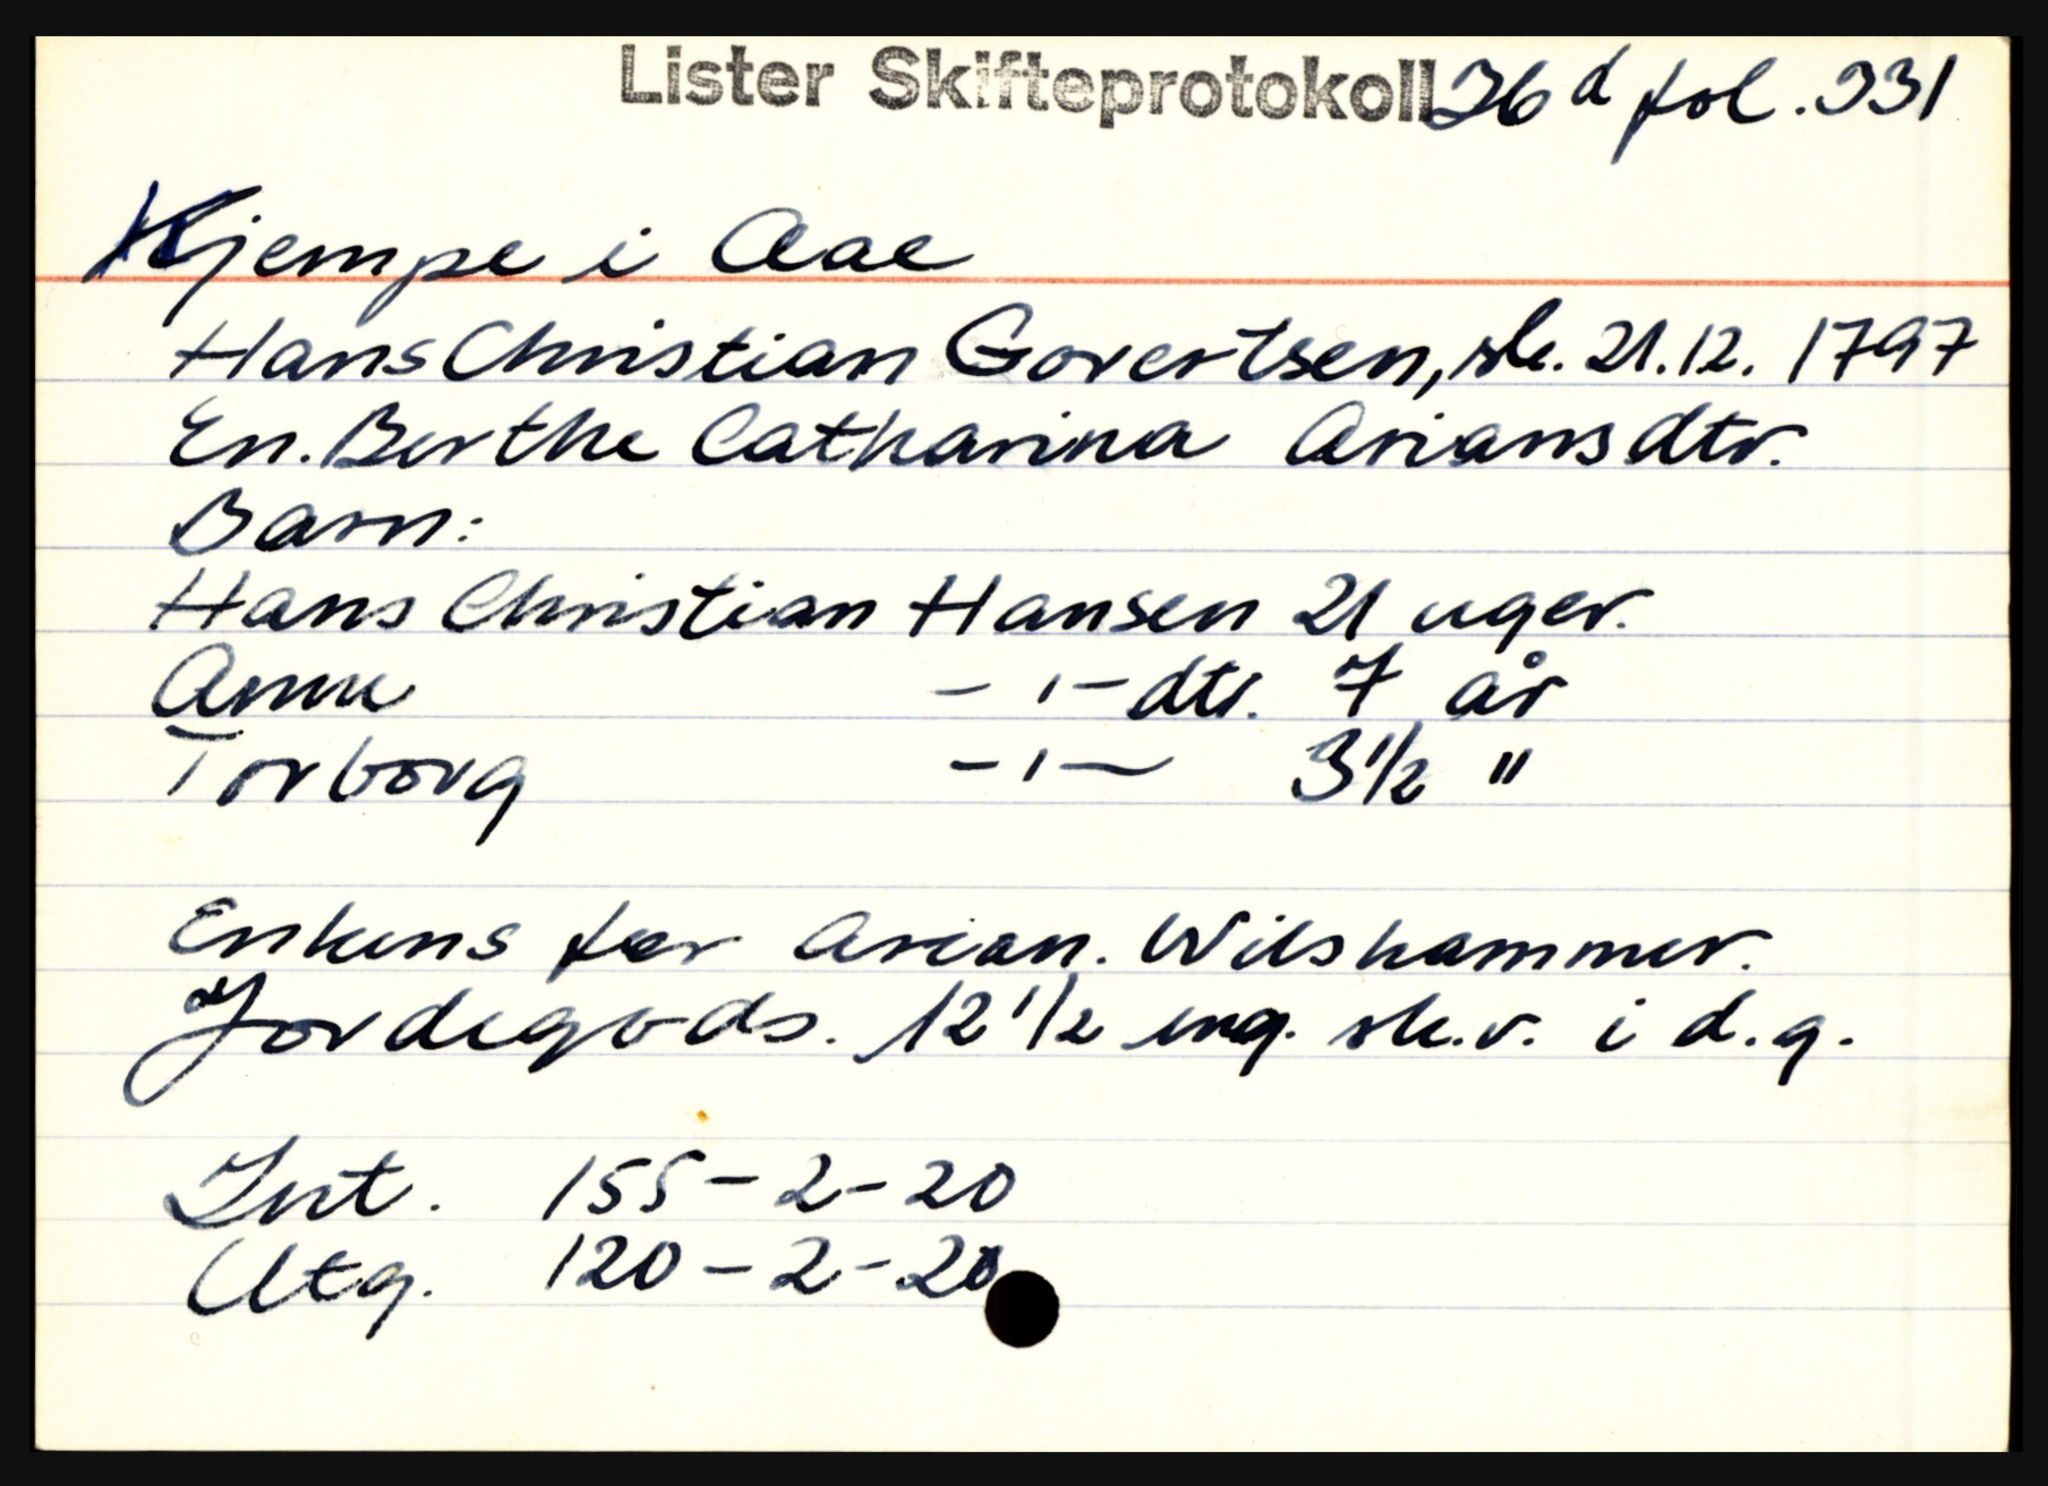 Lister Skifteprotokoll 36 d fol. 331
Kjempe i Aae
Hans Christian Govertsen, sk. 21.12. 1797
En. Berthe Catharina Ariansdtr.
Barn:
Hans Christian Hansen 21 uger.
Anne -ı- dtr. 7 år
Torborg -ı- 3 1/2 "
Enkens far Arian. Wilshammer.
Jordegods. 12 1/2 eng. sk.v. i d.g.
Int. 155-2-20
Utg. 120-2-20